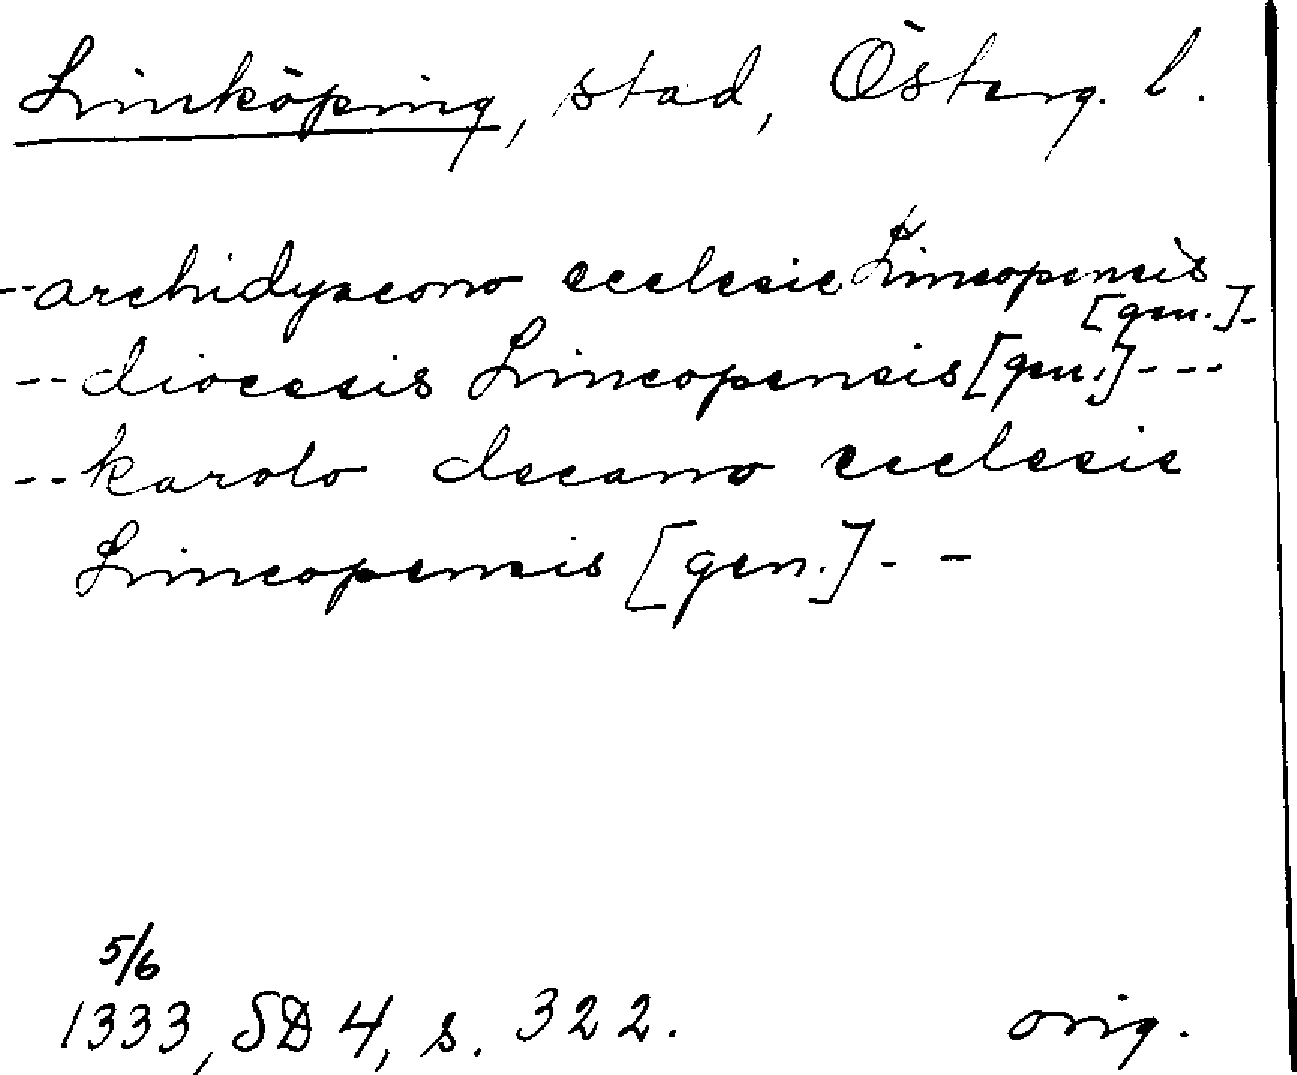 Linköping, stad, Österg. l.
--archidyacono ecclesie Lincopensis
[gen.]-
--diocesis Lincopensis [gen.]---
--karolo decano ecclesie
Lincopensis [gen.]--
5/6
1333, SD 4, s. 322. orig.